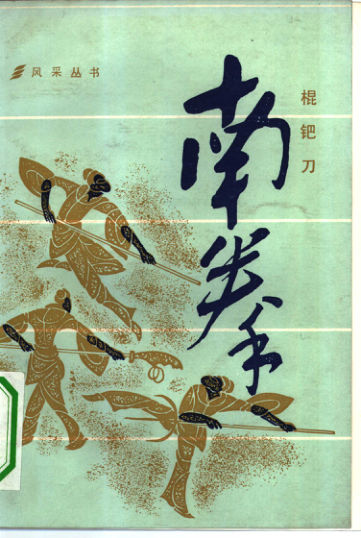 风采丛书
南拳
棍钯刀